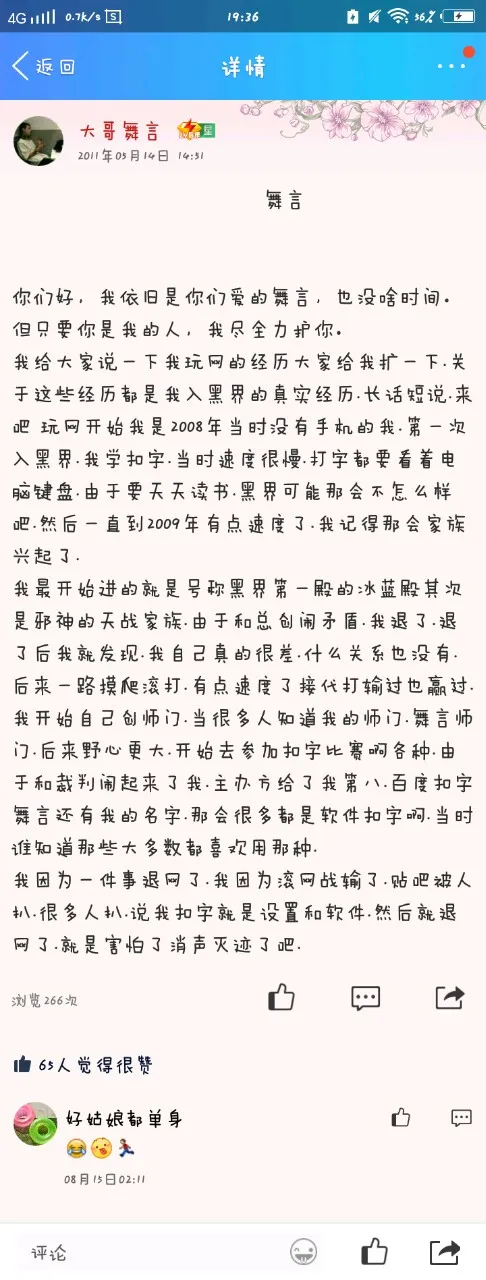 4G 0.7k/s S 19:36 56%
返回 详情
大哥舞言 星
2011年05月14日 14:51
舞言
你们好，我依旧是你们爱的舞言，也没啥时间。
但只要你是我的人，我尽全力护你。
我给大家说一下我玩网的经历大家给我扩一下.关
于这些经历都是我入黑界的真实经历.长话短说.来
吧 玩网开始我是2008年当时没有手机的我.第一次
入黑界.我学扣字.当时速度很慢.打字都要看着电
脑键盘.由于要天天读书.黑界可能那会不怎么样
吧.然后一直到2009年有点速度了.我记得那会家族
兴起了.
我最开始进的就是号称黑界第一殿的冰蓝殿其次
是邪神的天战家族.由于和总创闹矛盾.我退了.退
了后我就发现.我自己真的很差.什么关系也没有.
后来一路摸爬滚打.有点速度了接代打输过也赢过.
我开始自己创师门.当很多人知道我的师门.舞言师
门.后来野心更大.开始去参加扣字比赛啊各种.由
于和裁判闹起来了我.主办方给了我第八.百度扣字
舞言还有我的名字.那会很多都是软件扣字啊.当时
谁知道那些大多数都喜欢用那种.
我因为一件事退网了.我因为滚网战输了.贴吧被人
扒.很多人扒.说我扣字就是设置和软件.然后就退
网了.就是害怕了消声灭迹了吧.
浏览266次
65人觉得很赞
好姑娘都单身
08月15日02:11
评论